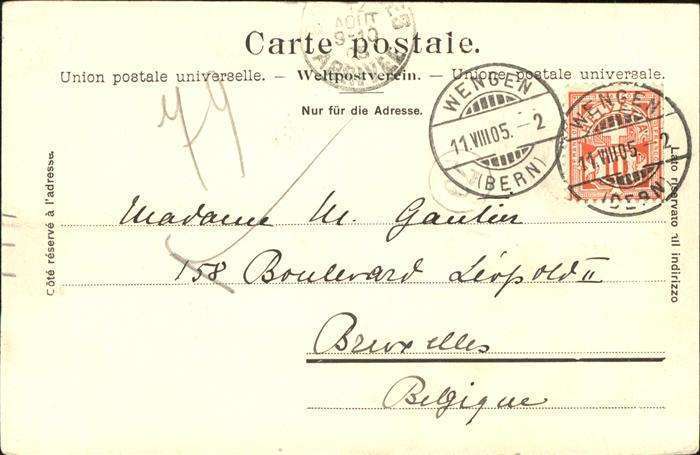 Carte postale.
Union postale universelle. — Weltpostverein. — Unione postale universale.
Nur für die Adresse.
AOUT
9-10
ARRIVÉE
WENGEN
11.VIII.05.-2
(BERN)
WENGEN
11.VIII.05.-2
(BERN)
79
Côté réservé à l'adresse.
Lato riservato all indirizzo
Madame M. Gautier
158 Boulevard Léopold II
Bruxelles
Belgique